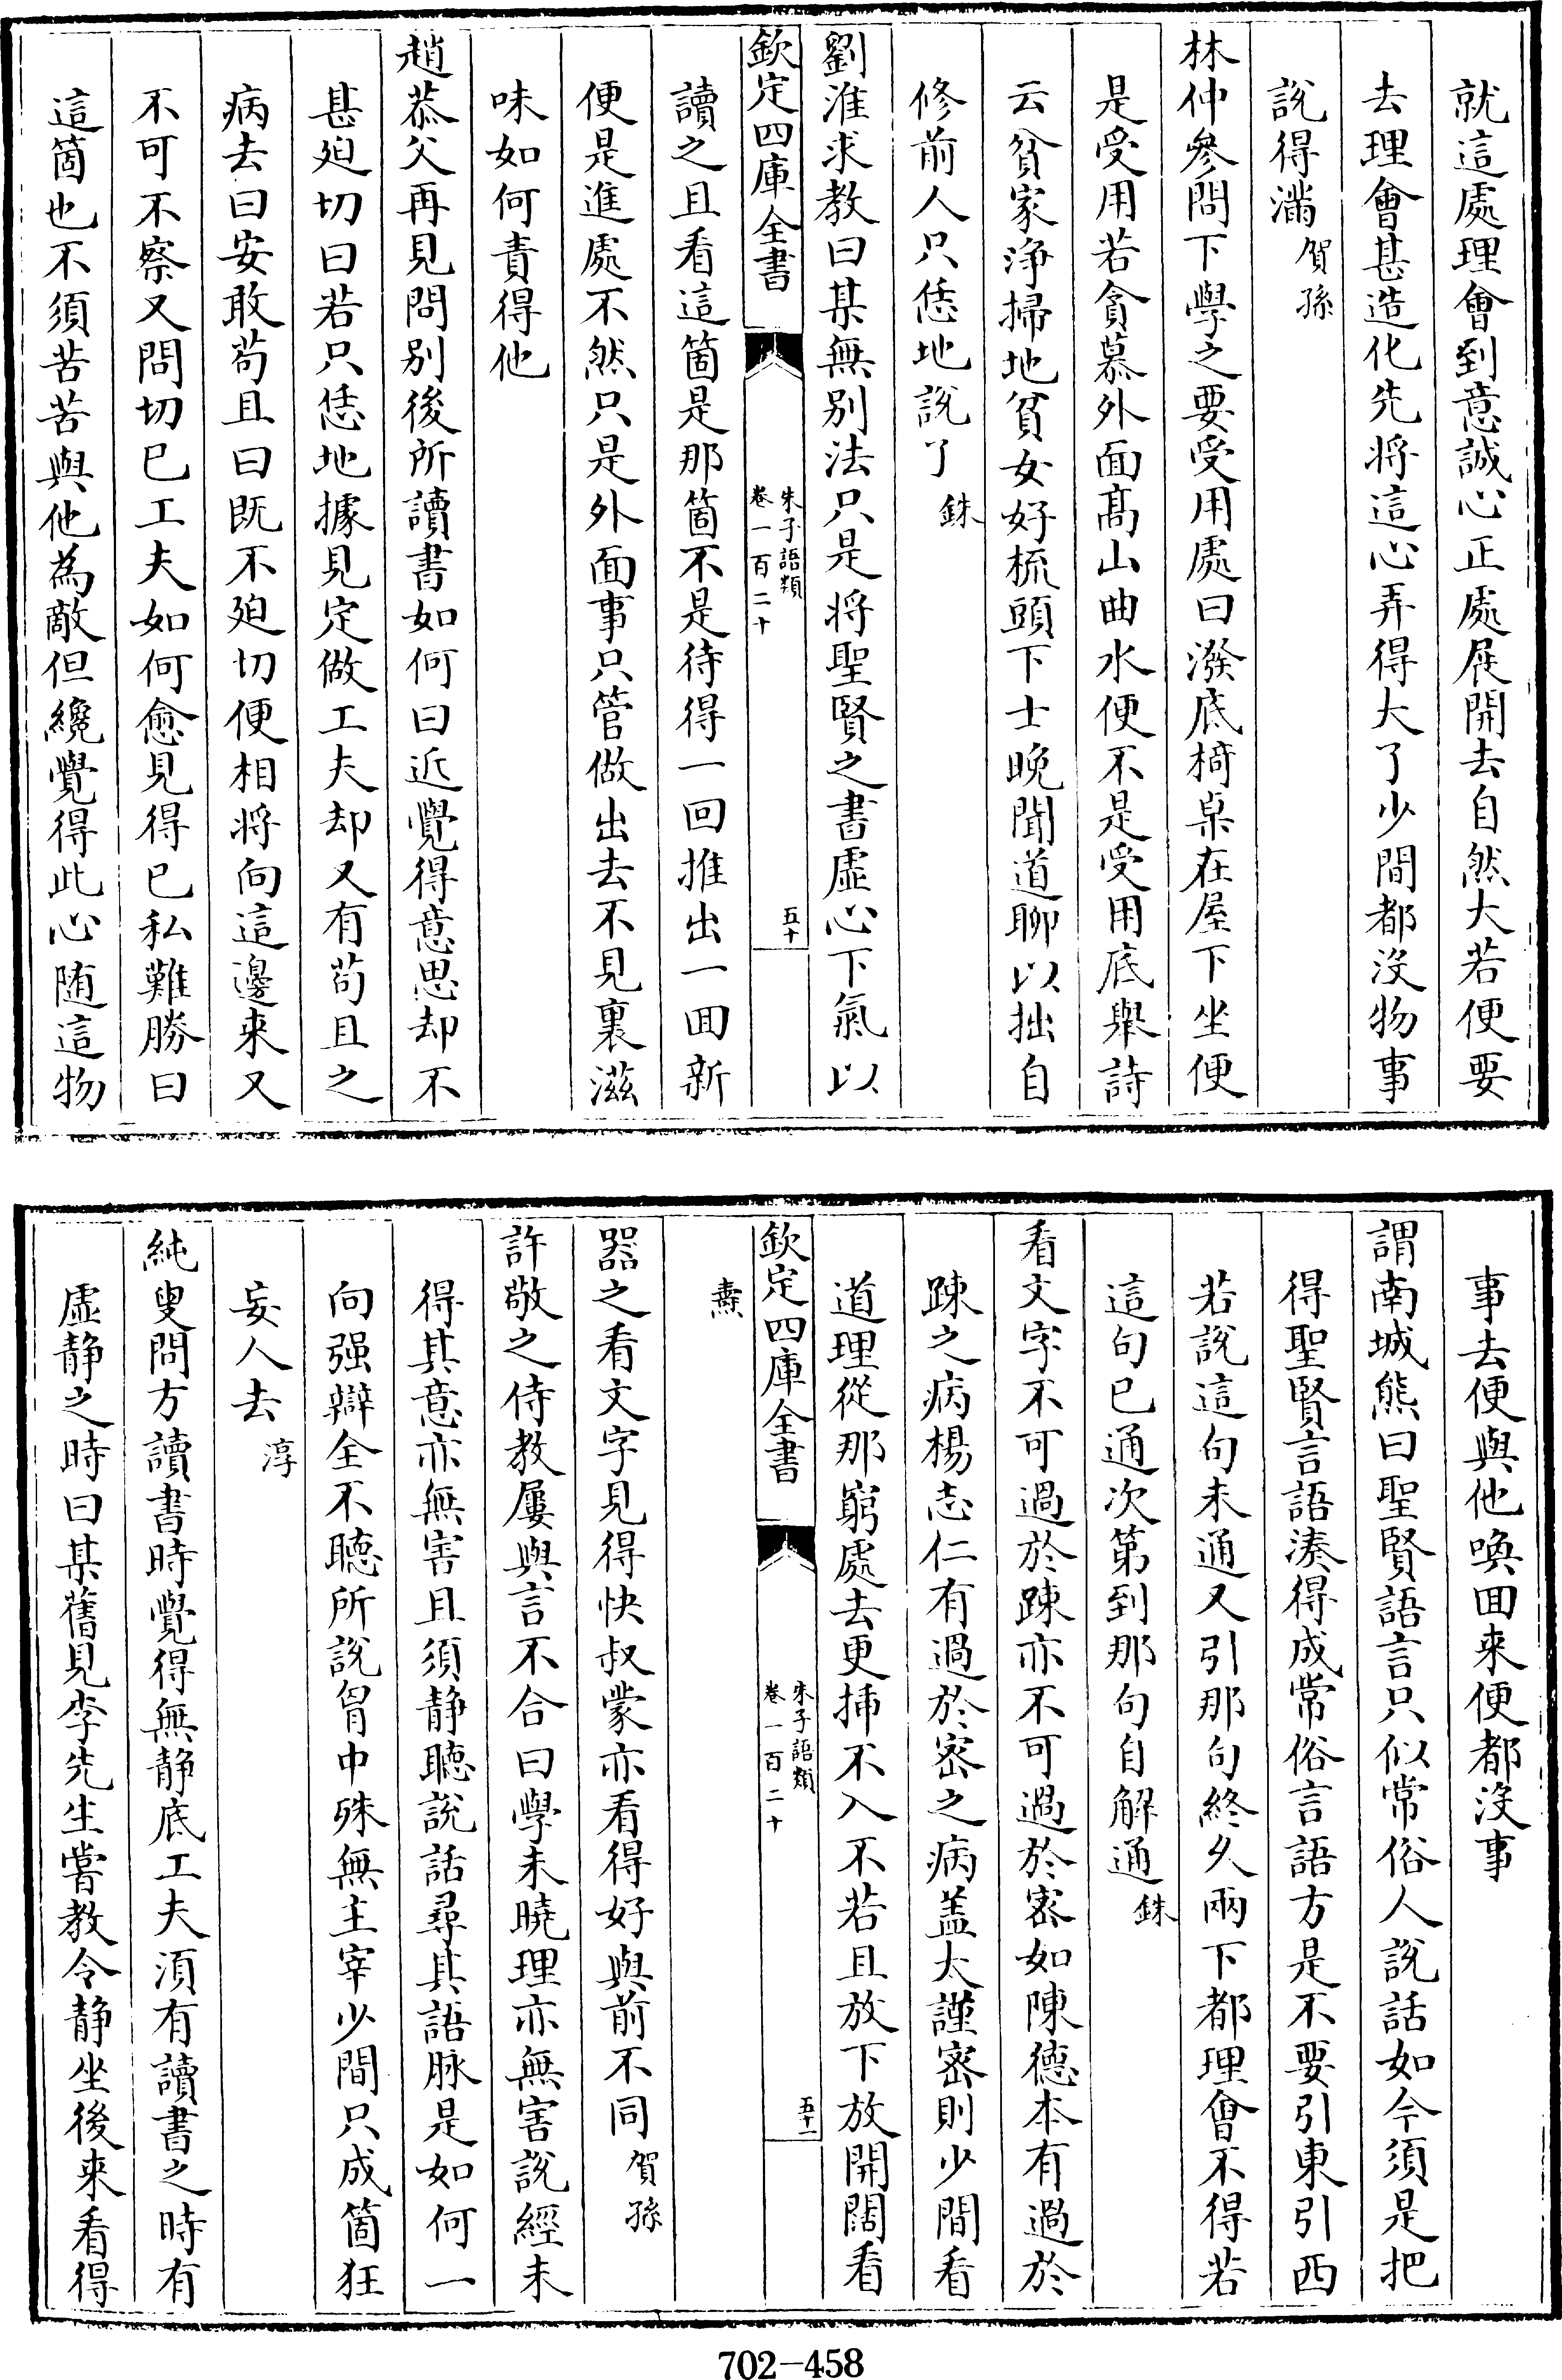 就這處理會到意誠心正處展開去自然大若便要
去理會甚造化先將這心弄得大了少間都沒物事
說得滿賀孫
林仲參問下學之要受用處曰潑底椅桌在屋下坐便
是受用若貪慕外面髙山曲水便不是受用底舉詩
云貧家浄掃地貧女好梳頭下士晚聞道聊以拙自
修前人只恁地說了銖
劉淮求教曰某無别法只是將聖賢之書虛心下氣以
欽定四庫全書
朱子語類
卷一百二十
五十
讀之且看這箇是那箇不是待得一回推出一囬新
便是進處不然只是外面事只管做出去不見裏滋
味如何責得他
趙恭父再見問别後所讀書如何曰近覺得意思却不
甚廹切曰若只恁地據見定做工夫却又有茍且之
病去曰安敢茍且曰既不廹切便相將向這邊来又
不可不察又問切已工夫如何愈見得已私難勝曰
這箇也不須苦苦與他為敵但纔覺得此心随這物
事去便與他喚囬来便都沒事
謂南城熊曰聖賢語言只似常俗人說話如今須是把
得聖賢言語湊得成常俗言語方是不要引東引西
若說這句未通又引那句終乆兩下都理會不得若
這句已通次第到那句自解通銖
看文字不可過於踈亦不可過於宻如陳徳本有過於
踈之病楊志仁有過於宻之病盖太謹宻則少間看
道理從那窮處去更揷不入不若且放下放開闊看
欽定四庫全書
朱子語類
卷一百二十
五十一
燾
器之看文字見得快叔蒙亦看得好與前不同賀孫
許敬之侍教屢與言不合曰學未曉理亦無害說經未
得其意亦無害且須静聽說話尋其語脉是如何一
向强辯全不聽所說胷中殊無主宰少間只成箇狂
妄人去淳
純叟問方讀書時覺得無静底工夫湏有讀書之時有
虛静之時曰某舊見李先生嘗教令静坐後来看得
702-458